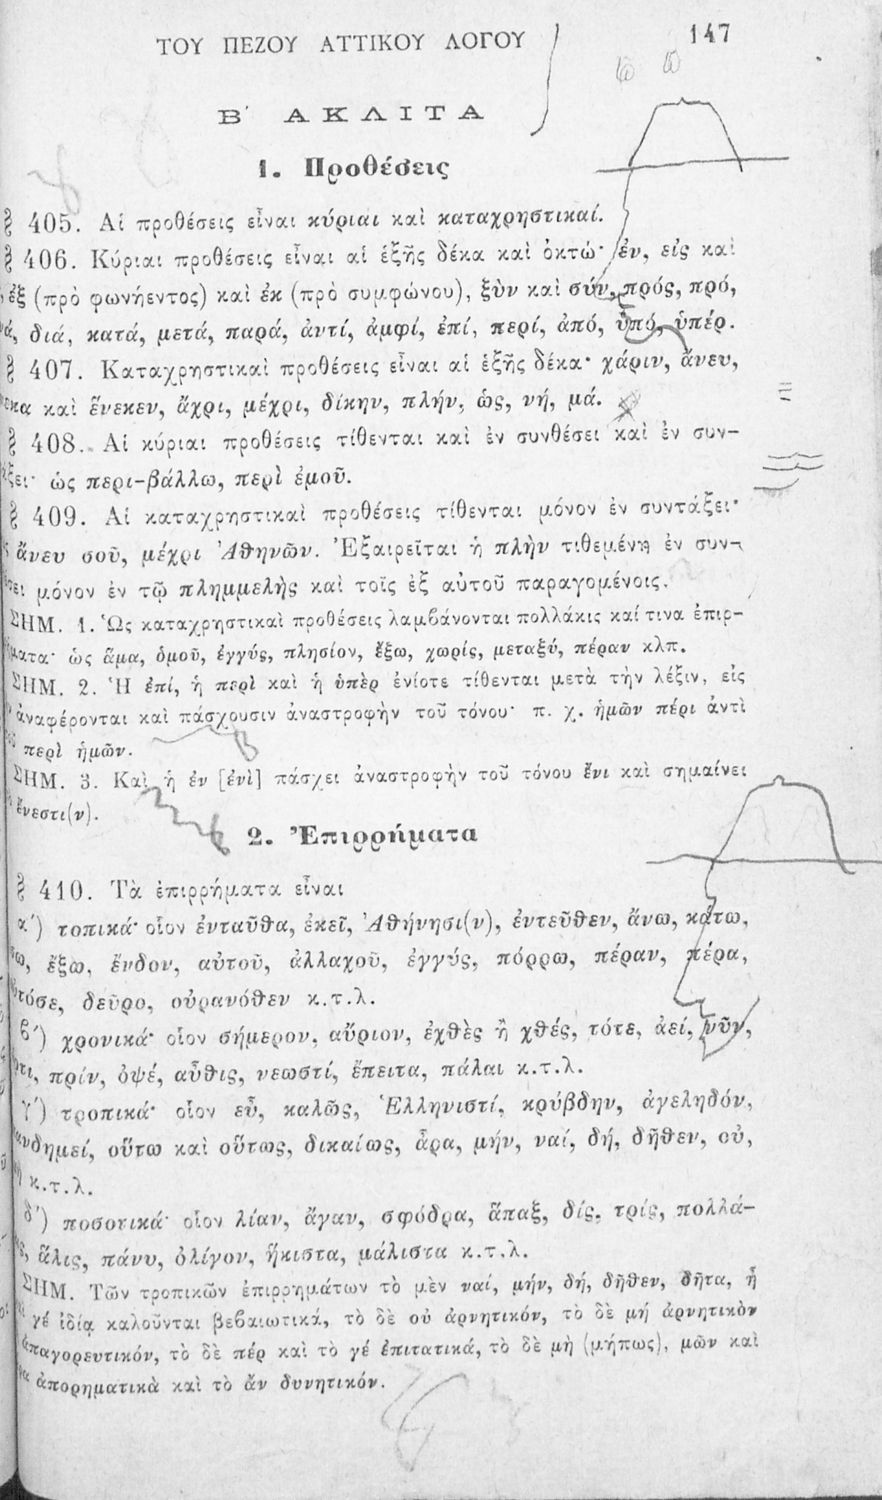 ΤΟΥ ΠΕΖΟΥ ΑΤΤΙΚΟΥ ΛΟΓΟΥ 147
Β΄ ΑΚΛΙΤΑ
1. Προθέσεις
§ 405. Αἱ προθέσεις εἶναι κύριαι καὶ καταχρηστικαί.
§ 406. Κύριαι προθέσεις εἶναι αἱ ἑξῆς δέκα καὶ ὀκτώ· ἐν, εἰς καὶ
ἐξ (πρὸ φωνήεντος) καὶ ἐκ (πρὸ συμφώνου), ξὺν καὶ σύν, πρός, πρό,
διά, κατά, μετά, παρά, ἀντί, ἀμφί, ἐπί, περί, ἀπό, ὑπό, ὑπέρ.
§ 407. Καταχρηστικαὶ προθέσεις εἶναι αἱ ἑξῆς δέκα· χάριν, ἄνευ,
καὶ ἕνεκεν, ἄχρι, μέχρι, δίκην, πλήν, ὡς, νή, μά.
§ 408. Αἱ κύριαι προθέσεις τίθενται καὶ ἐν συνθέσει καὶ ἐν συν-
ὡς περι-βάλλω, περὶ ἐμοῦ.
§ 409. Αἱ καταχρηστικαὶ προθέσεις τίθενται μόνον ἐν συντάξει·
ἄνευ σοῦ, μέχρι Ἀθηνῶν. Ἐξαιρεῖται ἡ πλὴν τιθεμένη ἐν συν-
μόνον ἐν τῷ πλημμελὴς καὶ τοῖς ἐξ αὐτοῦ παραγομένοις.
ΣΗΜ. 1. Ὡς καταχρηστικαὶ προθέσεις λαμβάνονται πολλάκις καί τινα ἐπιρ-
ὡς ἅμα, ὁμοῦ, ἐγγύς, πλησίον, ἔξω, χωρίς, μεταξύ, πέραν κλπ.
ΣΗΜ. 2. Ἡ ἐπί, ἡ περὶ καὶ ἡ ὑπὲρ ἐνίοτε τίθενται μετὰ τὴν λέξιν, εἰς
ἀναφέρονται καὶ πάσχουσιν ἀναστροφὴν τοῦ τόνου· π. χ. ἡμῶν πέρι ἀντὶ
περὶ ἡμῶν.
ΣΗΜ. 3. Καὶ ἡ ἐν [ἐνὶ] πάσχει ἀναστροφὴν τοῦ τόνου ἔνι καὶ σημαίνει
ἔνεστι(ν).
2. Ἐπιρρήματα
§ 410. Τὰ ἐπιρρήματα εἶναι
α΄) τοπικά· οἷον ἐνταῦθα, ἐκεῖ, Ἀθήνησι(ν), ἐντεῦθεν, ἄνω, κάτω,
ἔξω, ἔνδον, αὐτοῦ, ἀλλαχοῦ, ἐγγύς, πόρρω, πέραν, πέρα,
δεῦρο, οὐρανόθεν κ.τ.λ.
β΄) χρονικά· οἷον σήμερον, αὔριον, ἐχθὲς ἢ χθές, τότε, ἀεί, νῦν,
πρίν, ὀψέ, αὖθις, νεωστί, ἔπειτα, πάλαι κ.τ.λ.
γ΄) τροπικά· οἷον εὖ, καλῶς, Ἑλληνιστί, κρύβδην, ἀγεληδόν,
οὕτω καὶ οὕτως, δικαίως, ἆρα, μήν, ναί, δή, δῆθεν, οὐ,
κ.τ.λ.
δ΄) ποσοτικά· οἷον λίαν, ἄγαν, σφόδρα, ἅπαξ, δίς, τρίς, πολλά-
ἅλις, πάνυ, ὀλίγον, ἥκιστα, μάλιστα κ.τ.λ.
ΣΗΜ. Τῶν τροπικῶν ἐπιρρημάτων τὸ μὲν ναί, μήν, δή, δῆθεν, δῆτα, ἦ
γέ ἰδίᾳ καλοῦνται βεβαιωτικά, τὸ δὲ οὐ ἀρνητικόν, τὸ δὲ μή ἀρνητικὸν
ἀπαγορευτικόν, τὸ δὲ πέρ καὶ τὸ γέ ἐπιτατικά, τὸ δὲ μὴ (μήπως), μῶν καὶ
ἀπορηματικὰ καὶ τὸ ἄν δυνητικόν.